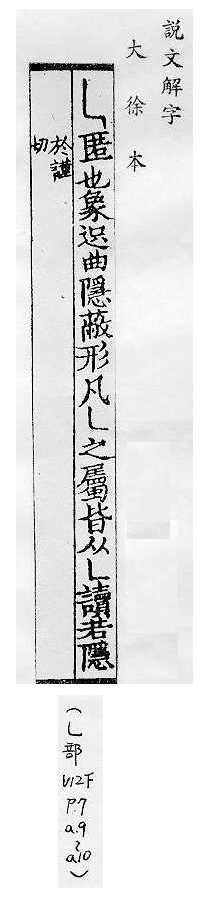 説文解字
大徐本
乚匿也象迟曲隱蔽形凡乚之屬皆从乚讀若隱
於謹
切
(乚部
V12下
P.7
a.9
~
a.10
)